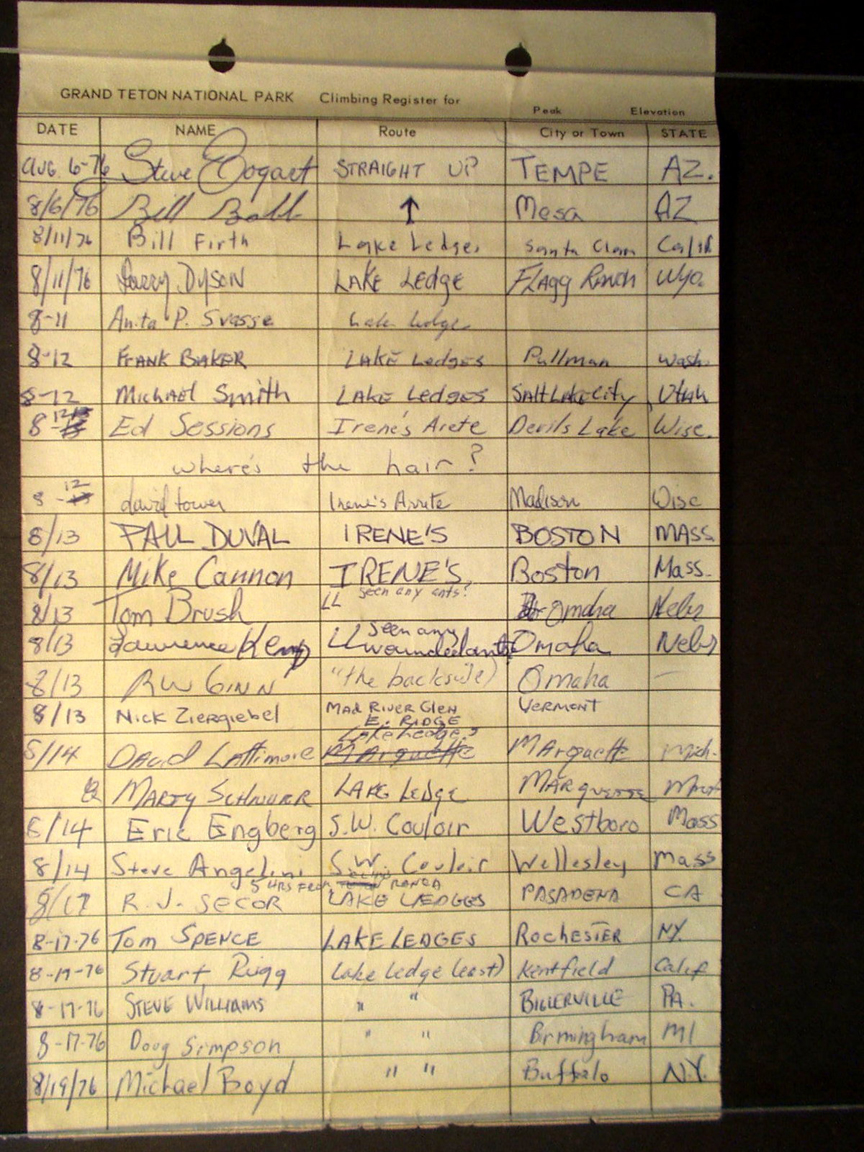 GRAND TETON NATIONAL PARK Climbing Register for Peak Elevation
DATE NAME Route City or Town STATE
AUG. 6-76 Steve Bogart STRAIGHT UP TEMPE AZ.
8/6/76 Bill Ball ↑ Mesa AZ
8/11/76 Bill Firth Lake Ledges Santa Clara Calif
8/11/76 Larry Dyson LAKE Ledge Flagg Ranch Wyo.
8-11 Anita P. Lake Ledge
8-12 FRANK BAKER LAKE Ledges Pullman Wash.
8-12 Michael Smith LAKE Ledges Salt Lake City, Utah
8-12 Ed Sessions Irene's Arete Devils Lake Wisc.
where's the hair?
8-12 david tower Irene's Arrete Madison Wisc
8/13 PAUL DUVAL IRENE'S BOSTON MASS
8/13 Mike Cannon IRENE'S Boston Mass.
seen any ants?
8/13 Tom Brush LL Omaha Nebr
8/13 Lawrence Kemp LL seen any wounded ants Omaha Nebr
8/13 RW GINN "the backside) Omaha —
8/13 Nick Ziergiebel MAD RIVER GLEN VERMONT
E. RIDGE
8/14 David Lattimore Lake Ledges Marquette Mich.
MARTY LAKE LEdge MARquette
8/14 Eric Engberg S.W. Couloir Westboro Mass
8/14 Steve Angelini S.W. Couloir Wellesley Mass
5 HRS FROM
8/17 R.J. SECOR LAKE LEDGES PASADENA CA
8-17-76 Tom SPENCE LAKE LEDGES ROCHESTER NY.
8-17-76 Stuart Rugg Lake Ledge (east) Kentfield Calif
8-17-76 STEVE WILLIAMS " " PA.
8-17-76 Doug Simpson " " Birmingham MI
8/19/76 Michael Boyd " " Buffalo N.Y.